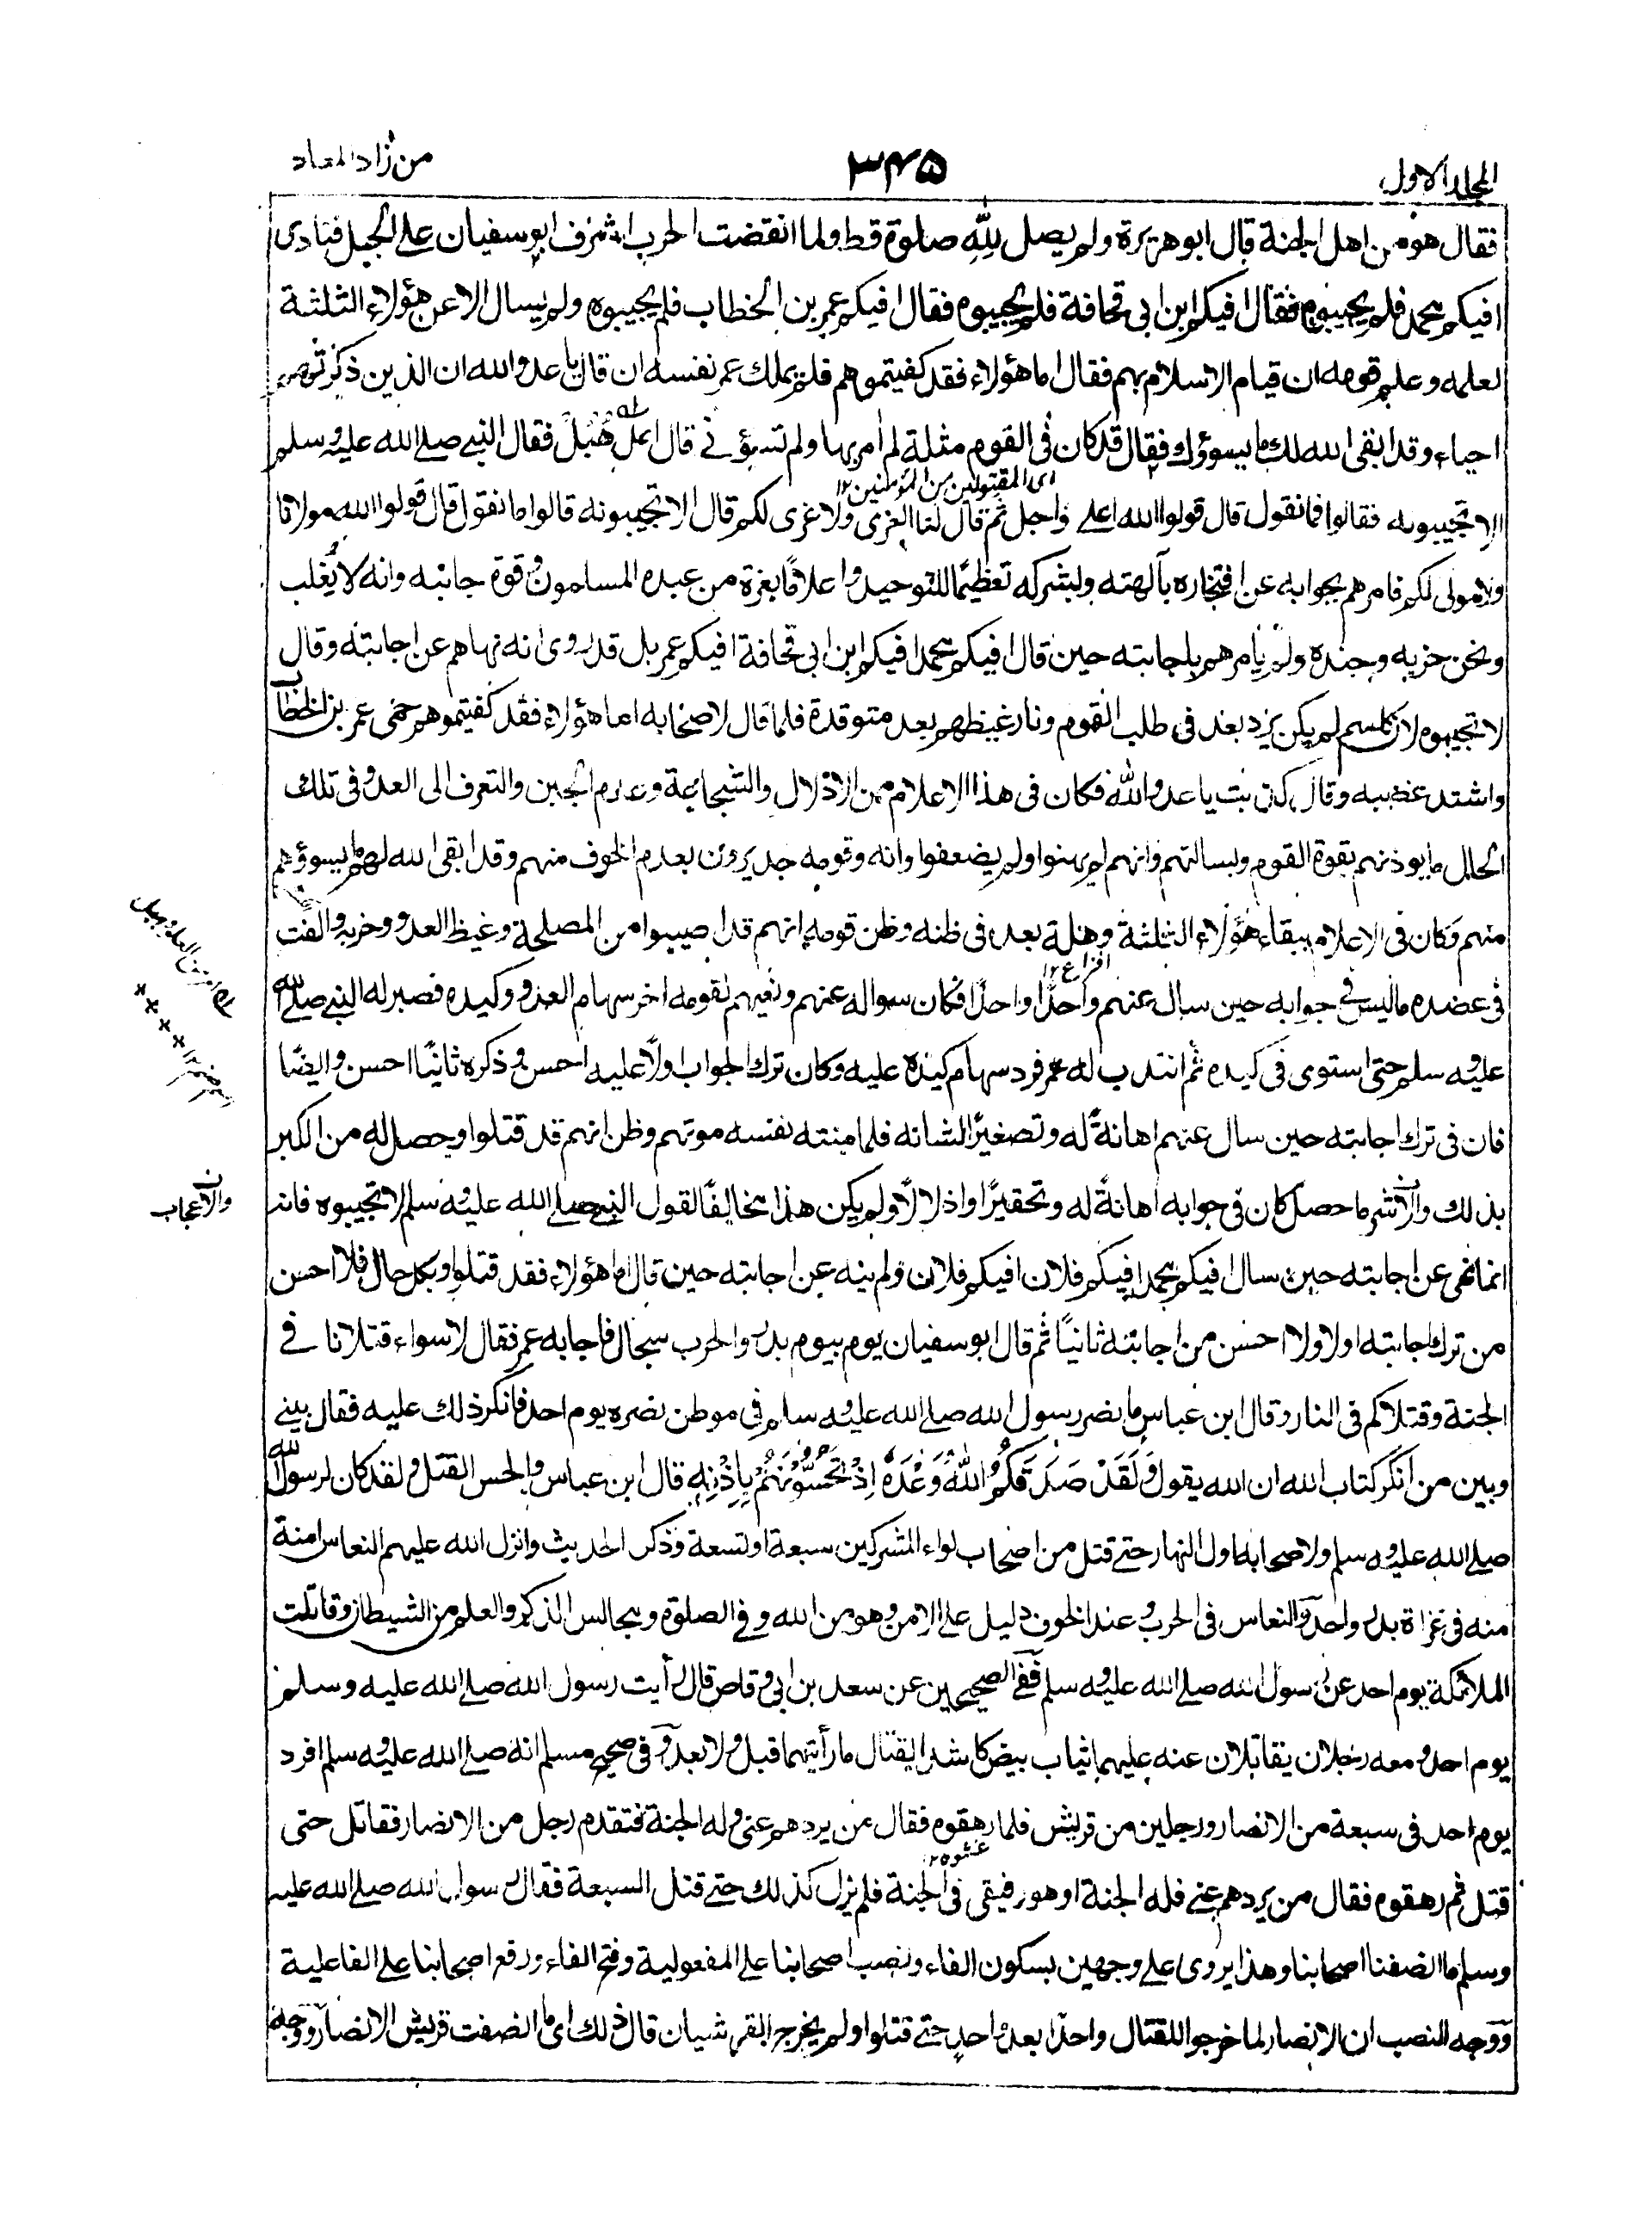 المجلد الاول
۳۴۵
من زاد المعاد
فقال هو من اهل الجنة قال ابو هريرة ولم يصل لله صلوة قط ولما انقضت الحرب اشرف ابو سفيان على الجبل فنادى
افيكم محمد فلم يجيبوه فقال افيكم ابن ابى قحافة فلم يجيبوه فقال افيكم عمر بن الخطاب فلم يجيبوه ولم يسال الا عن هؤلاء الثلثة
لعلمه وعلم قومه ان قيام الاسلام بهم فقال اما هؤلاء فقد كفيتموهم فلم يملك عمر نفسه ان قال يا عدو الله ان الذين ذكرتهم
احياء وقد ابقى الله لك ما يسوؤك فقال قد كان فى القوم مثلة لم أمر بها ولم تسؤنى قال اعل هُبَل فقال النبى صلى الله عليه وسلم
اى المقتولين من المؤمنين ۱۲
الا تجيبونه فقالوا فما نقول قال قولوا الله اعلى واجل ثم قال لنا العزى ولا عزى لكم قال الا تجيبونه قالوا ما نقول قال قولوا الله مولانا
ولا مولى لكم فامرهم بجوابه عن افتخاره بآلهته وبشركه تعظيمًا للتوحيد واعلامًا بعزة من عبده المسلمون وقوة جانبه وانه لا يُغلب
ونحن حزبه وجنده ولم يأمرهم باجابته حين قال افيكم محمد افيكم ابن ابى قحافة افيكم عمر بل قد روى انه نهاهم عن اجابته وقال
لا تجيبوه لان كلمهم لم يكن يزد بعد فى طلب القوم ونار غيظهم بعد متوقدة فلما قال لاصحابه اما هؤلاء فقد كفيتموهم حمى عمر بن الخطاب
واشتد غضبه وقال كذبت يا عدو الله فكان فى هذا الاعلام من الاذلال والشجاعة وعدم الجبن والتعرف الى العدو فى تلك
الحال ما يوذنهم بقوة القوم وبسالتهم وانهم لم يهنوا ولم يضعفوا وانه وقومه جديرون بعدم الخوف منهم وقد ابقى الله لهم ما يسوؤهم
منهم وكان فى الاعلام ببقاء هؤلاء الثلثة وهلة بعد فى ظنه وظن قومه انهم قد اصيبوا من المصلحة وغيظ العدو وحزبه والفت
افزاع ۱۲
فى عضده ما ليس فى جوابه حين سال عنهم واحدًا واحدًا فكان سواله عنهم ونعيهم لقومه اخر سهام العدو وكيده فصبر له النبى صلى الله
عليه وسلم حتى استوى فى كيده ثم انتدب له عمر فرد سهام كيده عليه وكان ترك الجواب اولًا عليه احسن وذكره ثانيًا احسن وايضًا
فان فى ترك اجابته حين سال عنهم اهانةً له وتصغيرًا لشانه فلما منته نفسه موتهم وظن انهم قد قتلوا وحصل له من الكبر
بذلك والاشر ما حصل كان فى جوابه اهانةً له وتحقيرًا واذلالًا ولم يكن هذا مخالفًا لقول النبى صلى الله عليه وسلم لا تجيبوه فانه
والاعجاب
انما نهى عن اجابته حين سال افيكم محمد افيكم فلان افيكم فلان ولم ينه عن اجابته حين قال اما هؤلاء فقد قتلوا وبكل حال فلا احسن
من ترك اجابته اولا ولا احسن من اجابته ثانيًا ثم قال ابو سفيان يوم بيوم بدر والحرب سجال فاجابه عمر فقال لا سواء قتلانا فى
الجنة وقتلاكم فى النار وقال ابن عباس ما نصر رسول الله صلى الله عليه وسلم فى موطن نصره يوم احد فانكر ذلك عليه فقال بينى
وبين من انكر كتاب الله ان الله يقول وَلَقَدْ صَدَقَكُمُ اللّٰهُ وَعْدَهٗ اِذْ تَحُسُّوْنَهُمْ بِاِذْنِهٖ قال ابن عباس والحس القتل ولقد كان لرسول الله
صلى الله عليه وسلم ولاصحابه اول النهار حتى قتل من اصحاب لواء المشركين سبعة او تسعة وذكر الحديث وانزل الله عليهم النعاس امنة
منه فى غزاة بدر واحد والنعاس فى الحرب وعند الخوف دليل على الامن وهو من الله وفى الصلوة ومجالس الذكر والعلم من الشيطان وقاتلت
الملائكة يوم احد عن رسول الله صلى الله عليه وسلم ففى الصحيحين عن سعد بن ابى وقاص قال رأيت رسول الله صلى الله عليه وسلم
يوم احد ومعه رجلان يقاتلان عنه عليهما ثياب بيض كاشد القتال ما رأيتهما قبل ولا بعد وفى صحيح مسلم انه صلى الله عليه وسلم افرد
يوم احد فى سبعة من الانصار ورجلين من قريش فلما رهقوه فقال من يردهم عنى وله الجنة فتقدم رجل من الانصار فقاتل حتى
غشوه ۱۲
قتل ثم رهقوه فقال من يردهم عنى فله الجنة او هو رفيقى فى الجنة فلم يزل كذلك حتى قتل السبعة فقال رسول الله صلى الله عليه
وسلم ما انصفنا اصحابنا وهذا يروى على وجهين بسكون الفاء ونصب اصحابنا على المفعولية وفتح الفاء ورفع اصحابنا على الفاعلية
ووجه النصب ان الانصار لما خرجوا للقتال واحدًا بعد واحد حتى قتلوا ولم يخرج القرشيان قال ذلك اى ما انصفت قريش الانصار ووجه